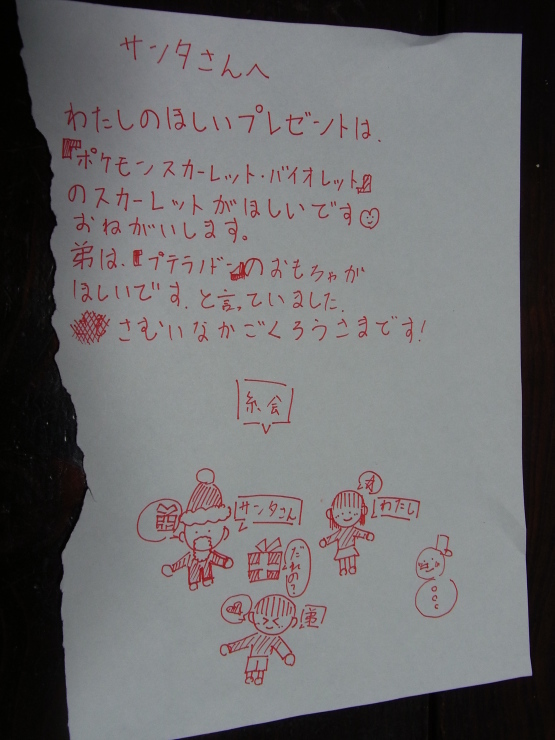 サンタさんへ
わたしのほしいプレゼントは、
『ポケモンスカーレット・バイオレット』
のスカーレットがほしいです
おねがいします。
弟は、『プテラノドン』のおもちゃが
ほしいです、と言っていました、
さむいなかごくろうさまです!
絵
サンタさん
わたし
だれの?
弟